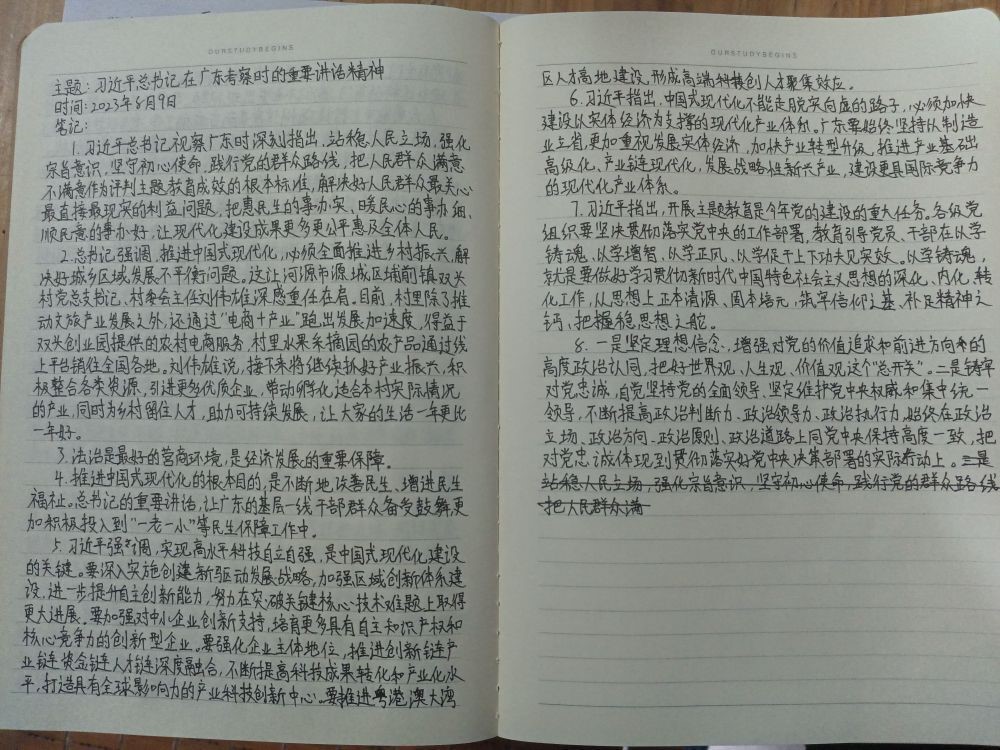 OURSTUDYBEGINS
主题：习近平总书记在广东考察时的重要讲话精神
时间：2023年8月9日
笔记：
1.习近平总书记视察广东时深刻指出，站稳人民立场，强化
宗旨意识，坚守初心使命，践行党的群众路线，把人民群众满意
不满意作为评判主题教育成效的根本标准，解决好人民群众最关心
最直接最现实的利益问题，把惠民生的事办实、暖民心的事办细、
顺民意的事办好，让现代化建设成果更多更公平惠及全体人民。
2.总书记强调，推进中国式现代化，必须全面推进乡村振兴，解
决好城乡区域发展不平衡问题。这让河源市源城区埔前镇双头
村党总支书记、村委会主任刘伟雄深感重任在肩。目前，村里除了推
动文旅产业发展之外，还通过“电商+产业”跑出发展加速度，得益于
双头创业园提供的农村电商服务，村里水果采摘园的农产品通过线
上平台销往全国各地。刘伟雄说，接下来将继续抓好产业振兴，积
极整合各类资源，引进更多优质企业，带动孵化适合本村实际情况
的产业，同时为乡村留住人才，助力可持续发展，让大家的生活一年更比
一年好。
3.法治是最好的营商环境，是经济发展的重要保障。
4.推进中国式现代化的根本目的，是不断地改善民生、增进民生
福祉。总书记的重要讲话，让广东的基层一线干部群众备受鼓舞，更
加积极投入到“一老一小”等民生保障工作中。
5.习近平强调，实现高水平科技自立自强，是中国式现代化建设
的关键。要深入实施创建新驱动发展战略，加强区域创新体系建
设，进一步提升自主创新能力，努力在突破关键核心技术难题上取得
更大进展。要加强对中小企业创新支持，培育更多具有自主知识产权和
核心竞争力的创新型企业。要强化企业主体地位，推进创新链产
业链资金链人才链深度融合，不断提高科技成果转化和产业化水
平，打造具有全球影响力的产业科技创新中心。要推进粤港澳大湾
OURSTUDYBEGINS
区人才高地建设，形成高端科技创人才聚集效应。
6.习近平指出，中国式现代化不能走脱实向虚的路子，必须加快
建设以实体经济为支撑的现代化产业体系。广东要始终坚持从制造
业立省，更加重视发展实体经济，加快产业转型升级，推进产业基础
高级化、产业链现代化，发展战略性新兴产业，建设更具国际竞争力
的现代化产业体系。
7.习近平指出，开展主题教育是今年党的建设的重大任务。各级党
组织要坚决贯彻落实党中央的工作部署，教育引导党员、干部在以学
铸魂、以学增智、以学正风、以学促干上下功夫见实效。以学铸魂，
就是要做好学习贯彻新时代中国特色社会主义思想的深化、内化、转
化工作，从思想上正本清源、固本培元，筑牢信仰之基、补足精神之
钙、把握稳思想之舵。
8.一是坚定理想信念，增强对党的价值追求和前进方向的
高度政治认同，把好世界观、人生观、价值观这个“总开关”。二是铸牢
对党忠诚，自觉坚持党的全面领导、坚定维护党中央权威和集中统一
领导，不断提高政治判断力、政治领导力、政治执行力，始终在政治
立场、政治方向、政治原则、政治道路上同党中央保持高度一致，把
对党忠诚体现到贯彻落实好党中央决策部署的实际行动上。三是
站稳人民立场，强化宗旨意识，坚守初心使命，践行党的群众路线
把人民群众满